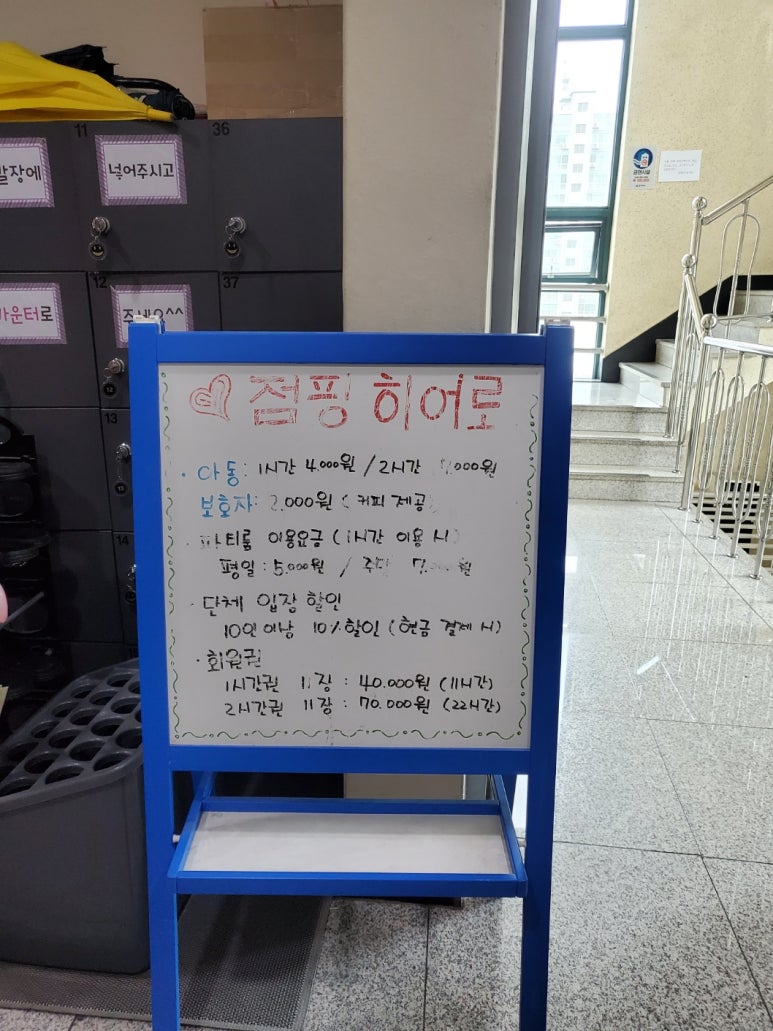 11
36
넣어주시고
12
37
카운터로
주세요^^
13
14
금연시설
점핑 히어로
· 아동: 1시간 4.000원 / 2시간 .000원
보호자: 2.000원 (커피 제공)
· 파티룸 이용요금 (1시간 이용 시)
평일 : 5.000원 / 주말 7.000원
· 단체 입장 할인
10인 이상 10% 할인 (현금 결제 시)
· 회원권
1시간권 11장 : 40.000원 (11시간)
2시간권 11장 : 70.000원 (22시간)